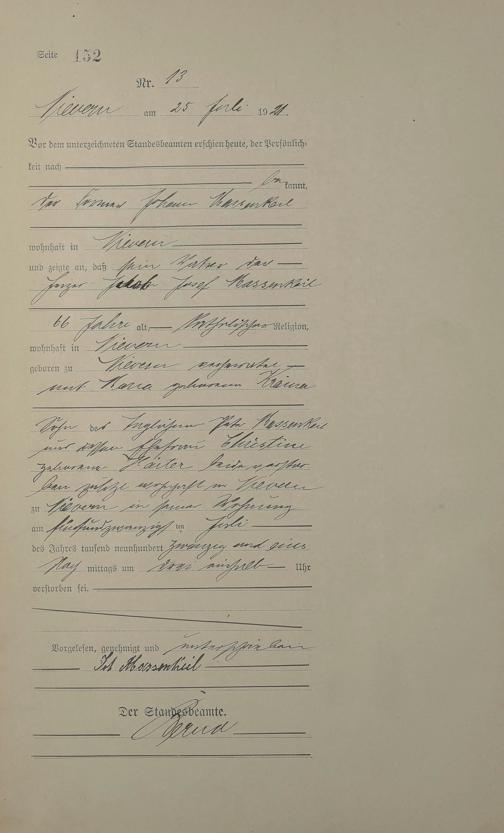 Seite 152
Nr. 13
Nievern am 25 Juli 1921.
Vor dem unterzeichneten Standesbeamten erschien heute, der Persönlich-
keit nach
bekannt,
der Johann Massenkeil
wohnhaft in Nievern
und zeigte an, daß sein Vater der
Josef Massenkeil
66 Jahre alt, Katholischer Religion,
wohnhaft in Nievern
geboren zu Nievern verheiratet
mit Maria geborenen
Sohn des Peter Massenkeil
und dessen Ehefrau Christine
geborene beide verstor
ben zuletzt wohnhaft in Nievern
zu Nievern in seiner Wohnung
am fünfundzwanzigsten Juli
des Jahres tausend neunhundert zwanzig und eins
Nach mittags um drei einhalb Uhr
verstorben sei.
Vorgelesen, genehmigt und unterschrieben
Joh Massenkeil
Der Standesbeamte.